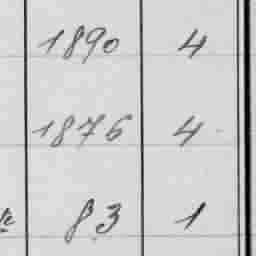 1890 4
1876 4
83 1